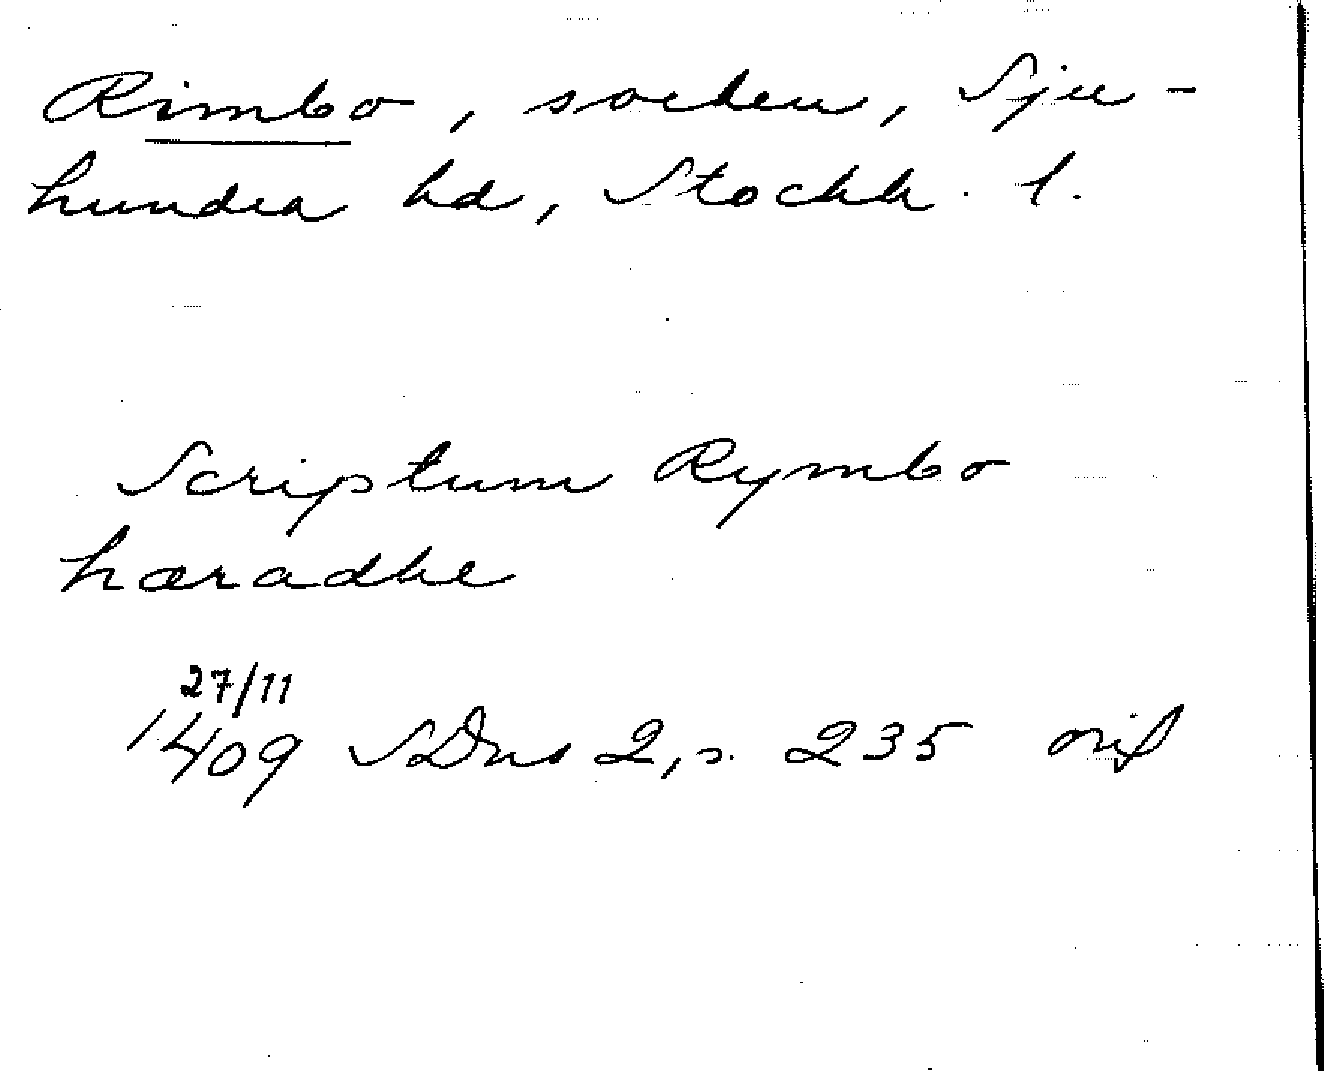 Rimbo, socken, Sju-
hundra hd, Stockh. l.
Scriptum Rymbo
hæradhe
27/11
1409 SDns 2, s. 235 orig